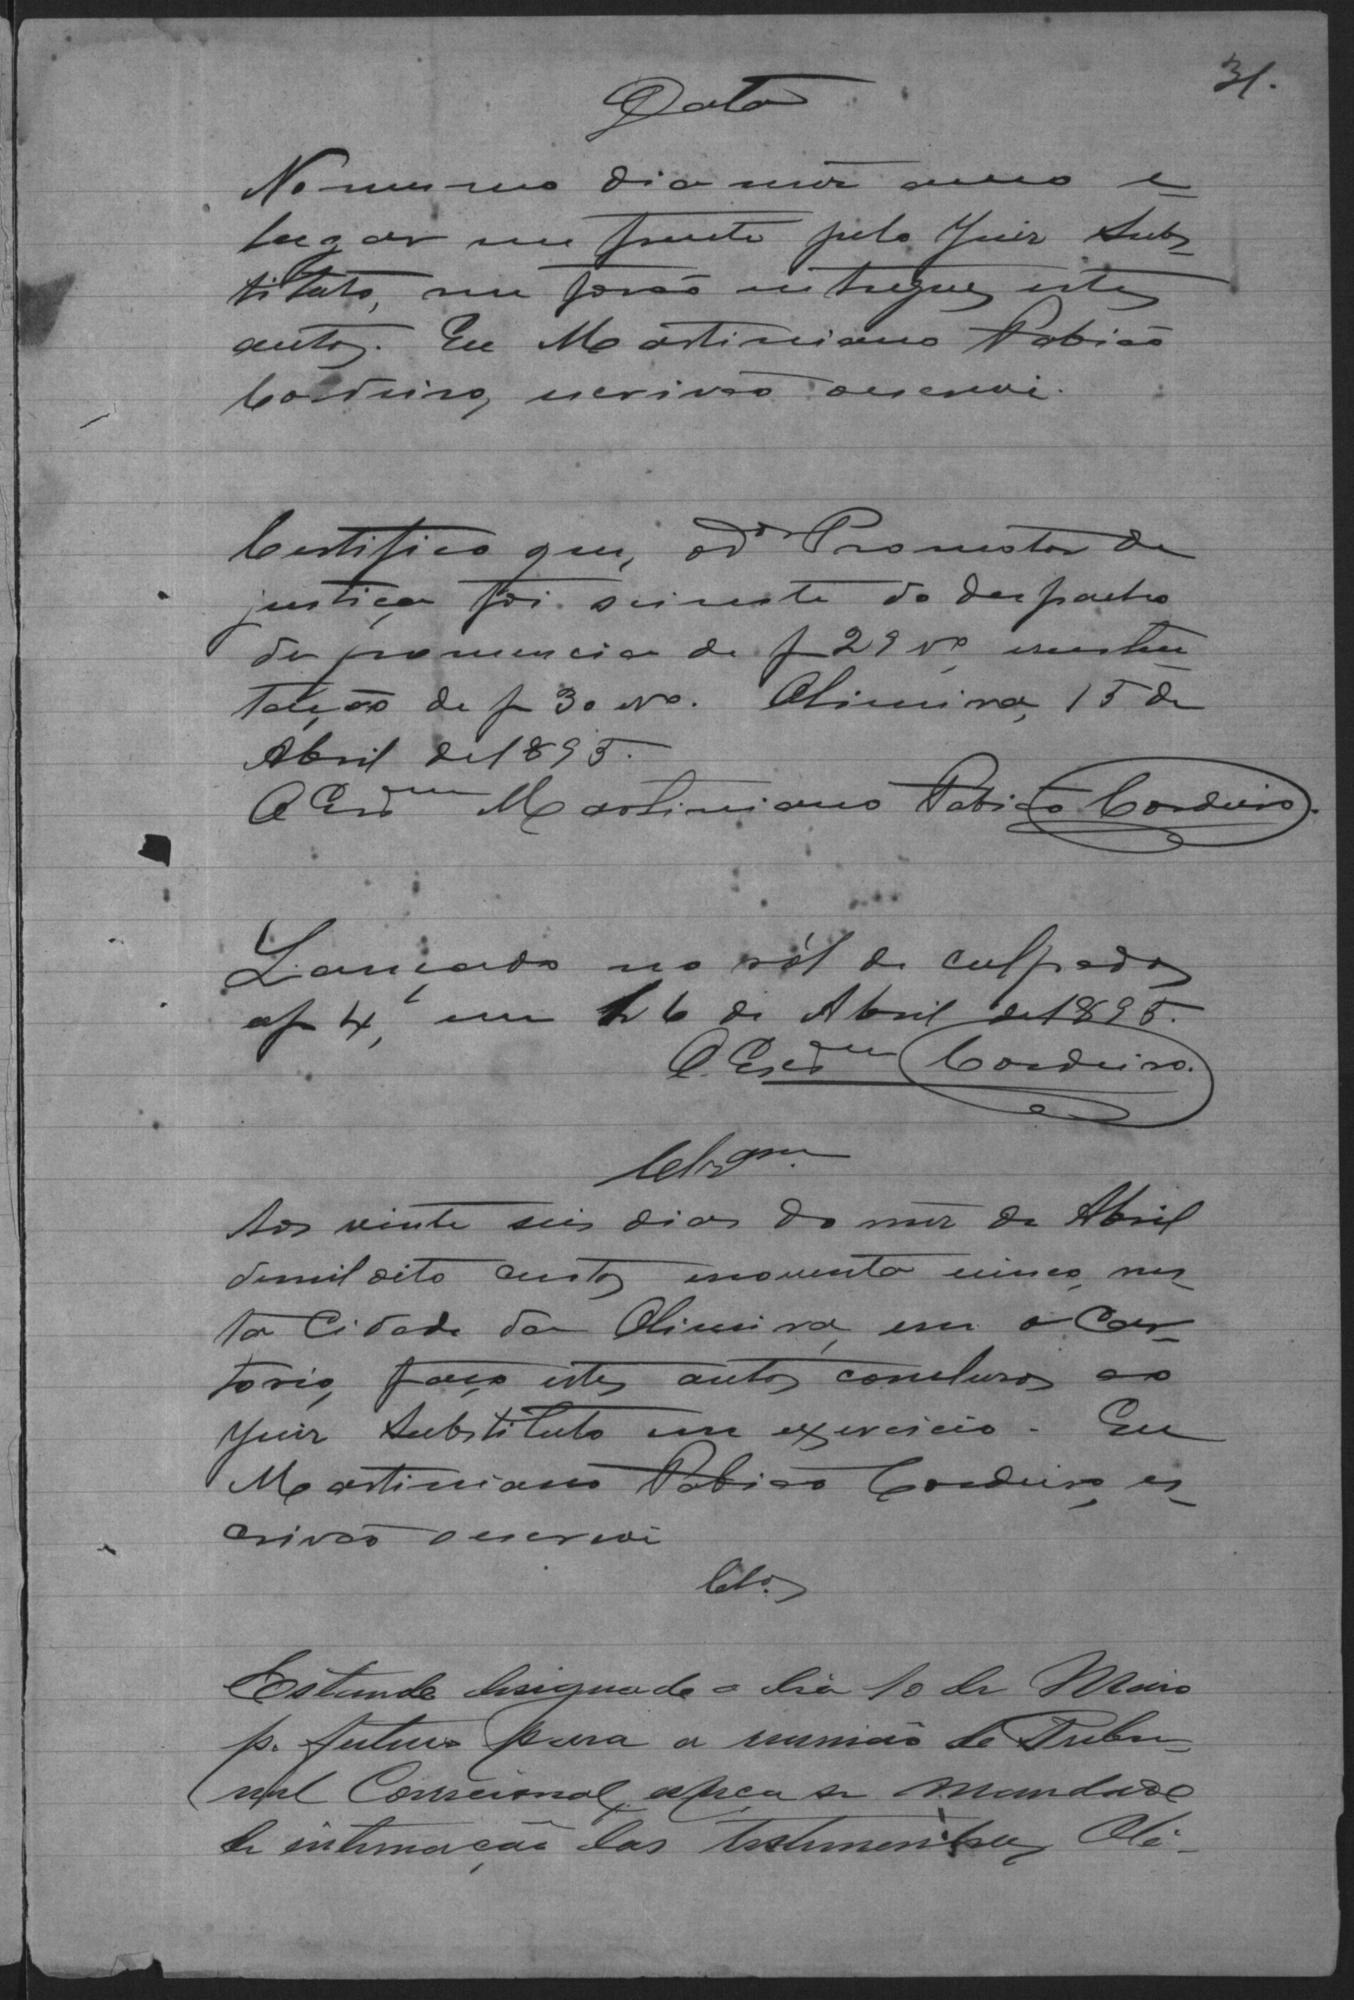 31.
Data
No mesmo dia mez anno e
lugar me frente pelo Juiz Subs-
tituto, me forão entregues estes
autos. Eu Martiniano Fabião
Cordeiro, escrivão o escrevi.
Certifico que, o Dr Promotor de
justiça foi sciente do despacho
de pronuncia de f 29 vo, e
tação de f 30 vo. 15 de
Abril de 1895.
O Escrm Martiniano Fabião Cordeiro.
Lançado no ról de culpados
af 4, em 26 de Abril de 1895.
O Escrm Cordeiro.
Clzam.
Aos vinte seis dias do mez de Abril
de mil oito centos e noventa e cinco, nes-
ta Cidade da em o Car-
torio, faço estes autos conclusos ao
Juiz Substituto em exercicio. Eu
Martiniano Fabião Cordeiro, es-
crivão o escrevi
Clos.
Estando designado o dia 10 de Maio
p. futuro para a reunião do Tribu-
nal Correcional, espeça se mandado
de intimação das testemunhas, Oli-